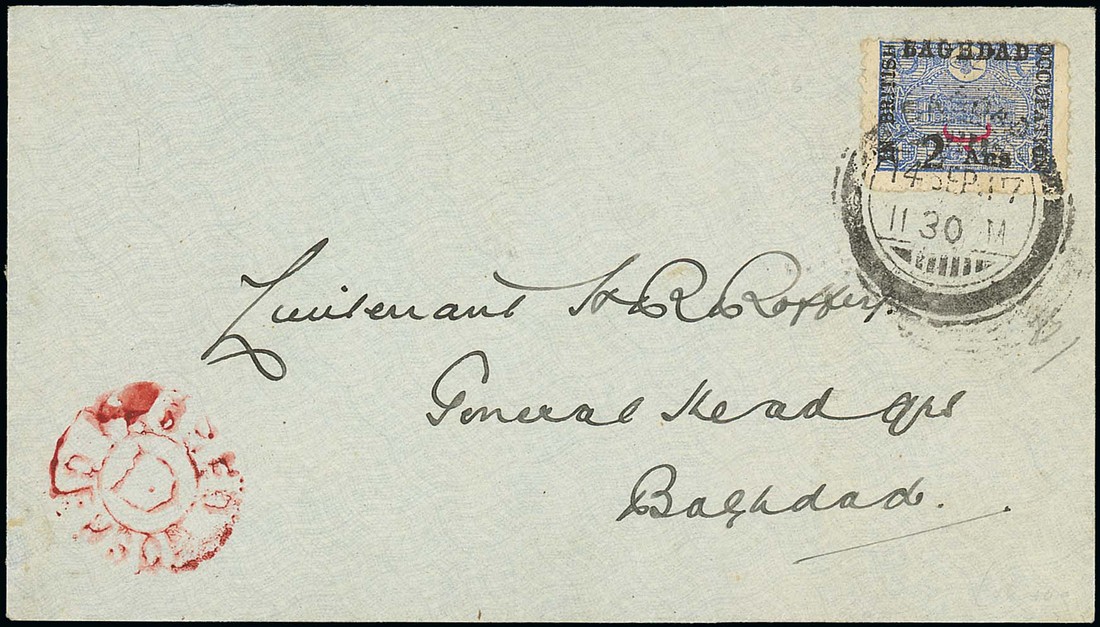 BAGHDAD
IN BRITISH
OCCUPATION
2 Ans
14 SEP. 17
11 30 M
Lieutenant St R Roffery.
General Head Qrs
Baghdad.
PASSED CENSOR